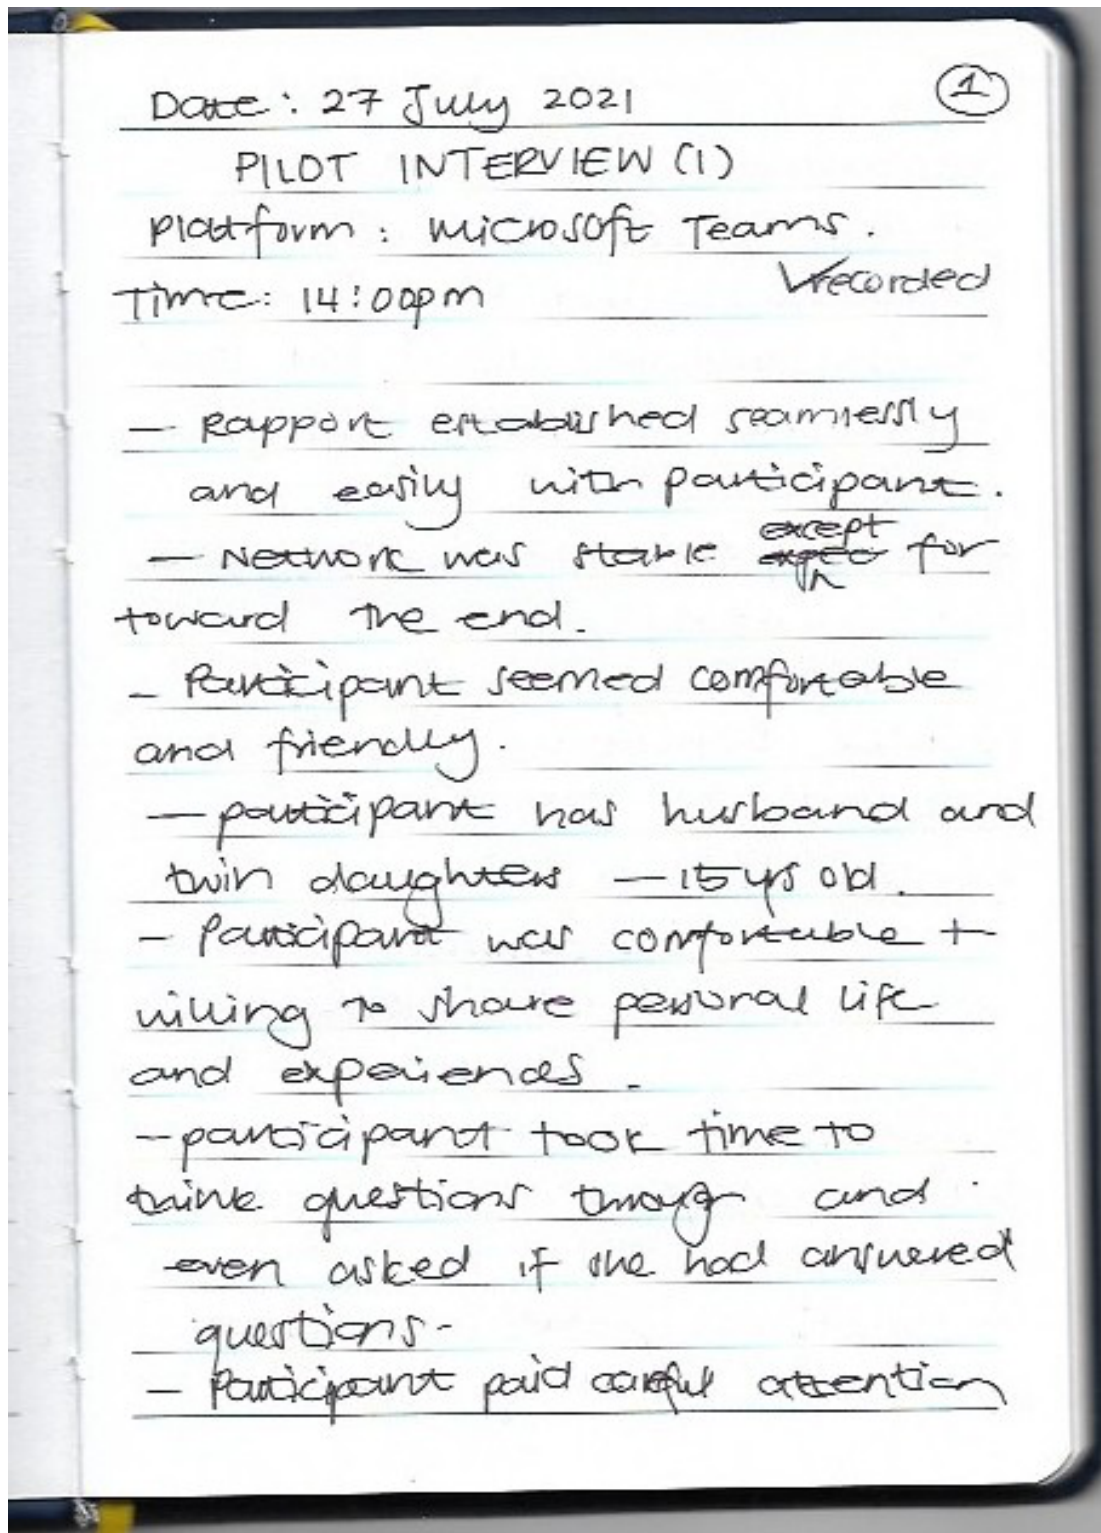 ①
Date: 27 July 2021
PILOT INTERVIEW (1)
Platform: Microsoft Teams.
✓recorded
Time: 14:00pm
— Rapport established seamlessly
and easily with participant.
— Network was stable except for
toward the end.
– Participant seemed comfortable
and friendly.
— participant has husband and
twin daughters — 15 yrs old.
– Participant was comfortable +
willing to share personal life
and experiences.
– participant took time to
think questions throug and
even asked if she had answered
questions-
– Participant paid careful attention